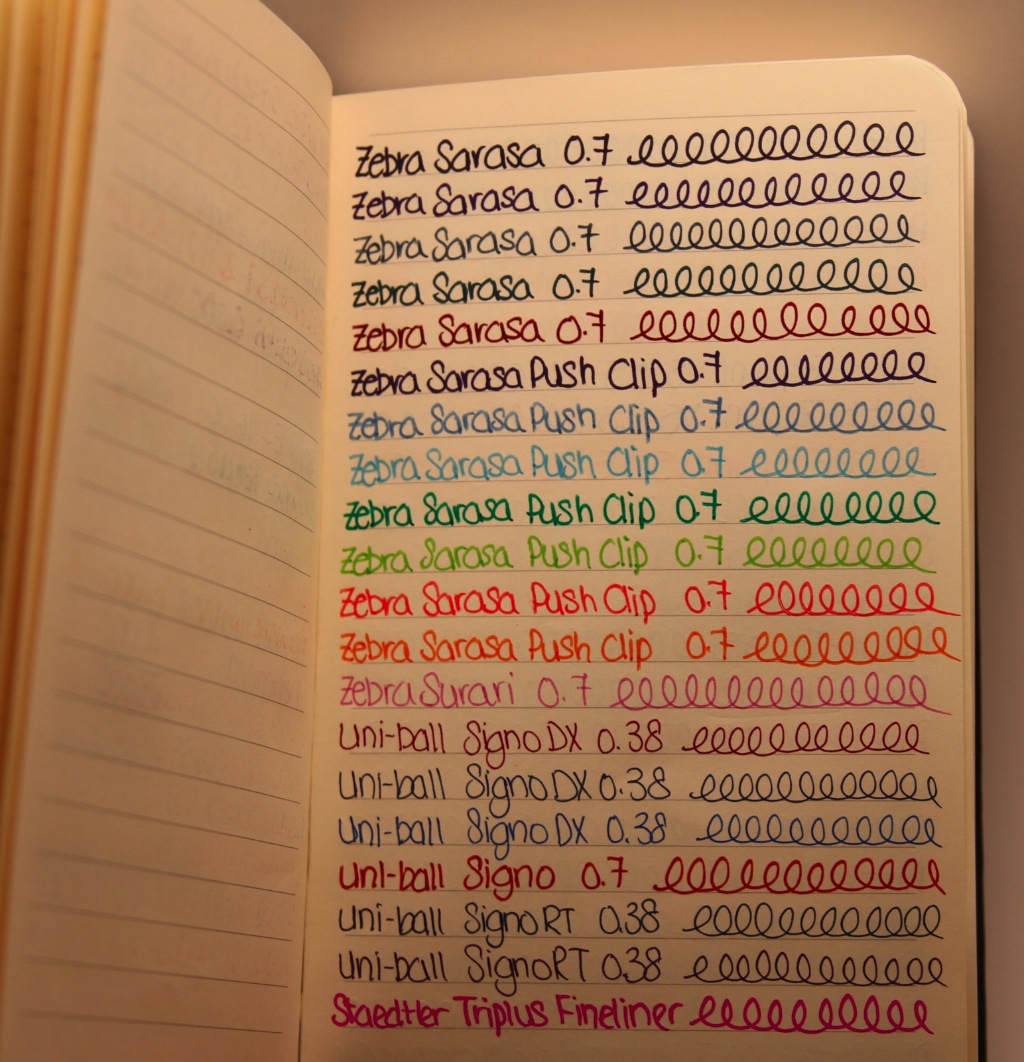 Zebra Sarasa 0.7
Zebra Sarasa 0.7
Zebra Sarasa 0.7
Zebra Sarasa 0.7
Zebra Sarasa 0.7
Zebra Sarasa Push Clip 0.7
Zebra Sarasa Push Clip 0.7
Zebra Sarasa Push Clip 0.7
Zebra Sarasa Push Clip 0.7
Zebra Sarasa Push Clip 0.7
Zebra Sarasa Push Clip 0.7
Zebra Sarasa Push Clip 0.7
Zebra Surari 0.7
Uni-ball Signo DX 0.38
Uni-ball Signo DX 0.38
Uni-ball Signo DX 0.38
Uni-ball Signo 0.7
Uni-ball Signo RT 0.38
Uni-ball Signo RT 0.38
Staedtler Triplus Fineliner